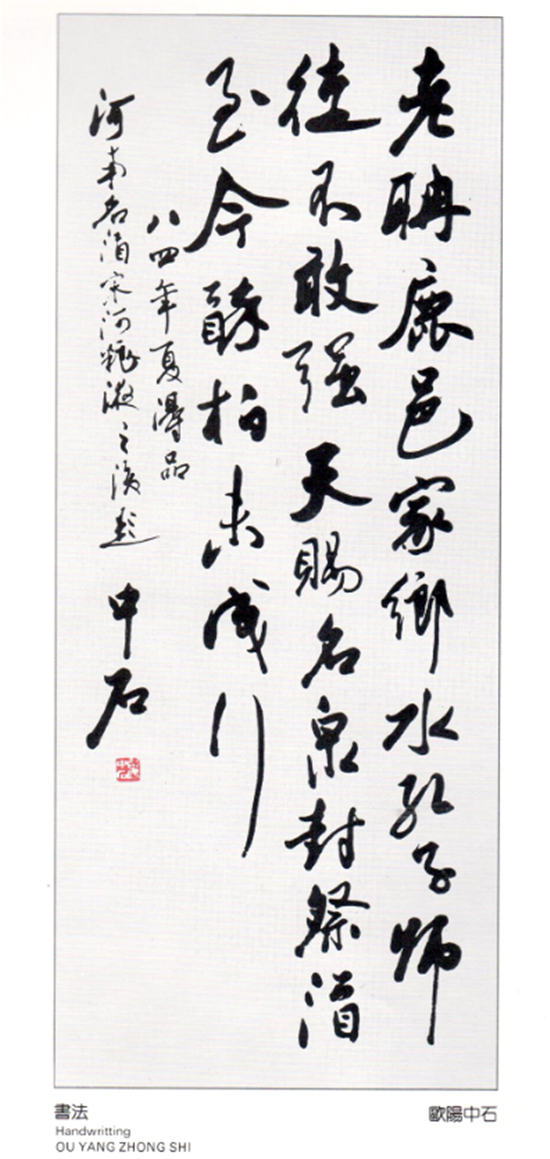 老聃鹿邑家鄉水孔子師
徒不敢强天賜名泉封祭酒
至今醉柏未成行
八四年夏得品
河南名酒宋河粮液之後题
中石
書法
歐陽中石
Handwritting
OU YANG ZHONG SHI